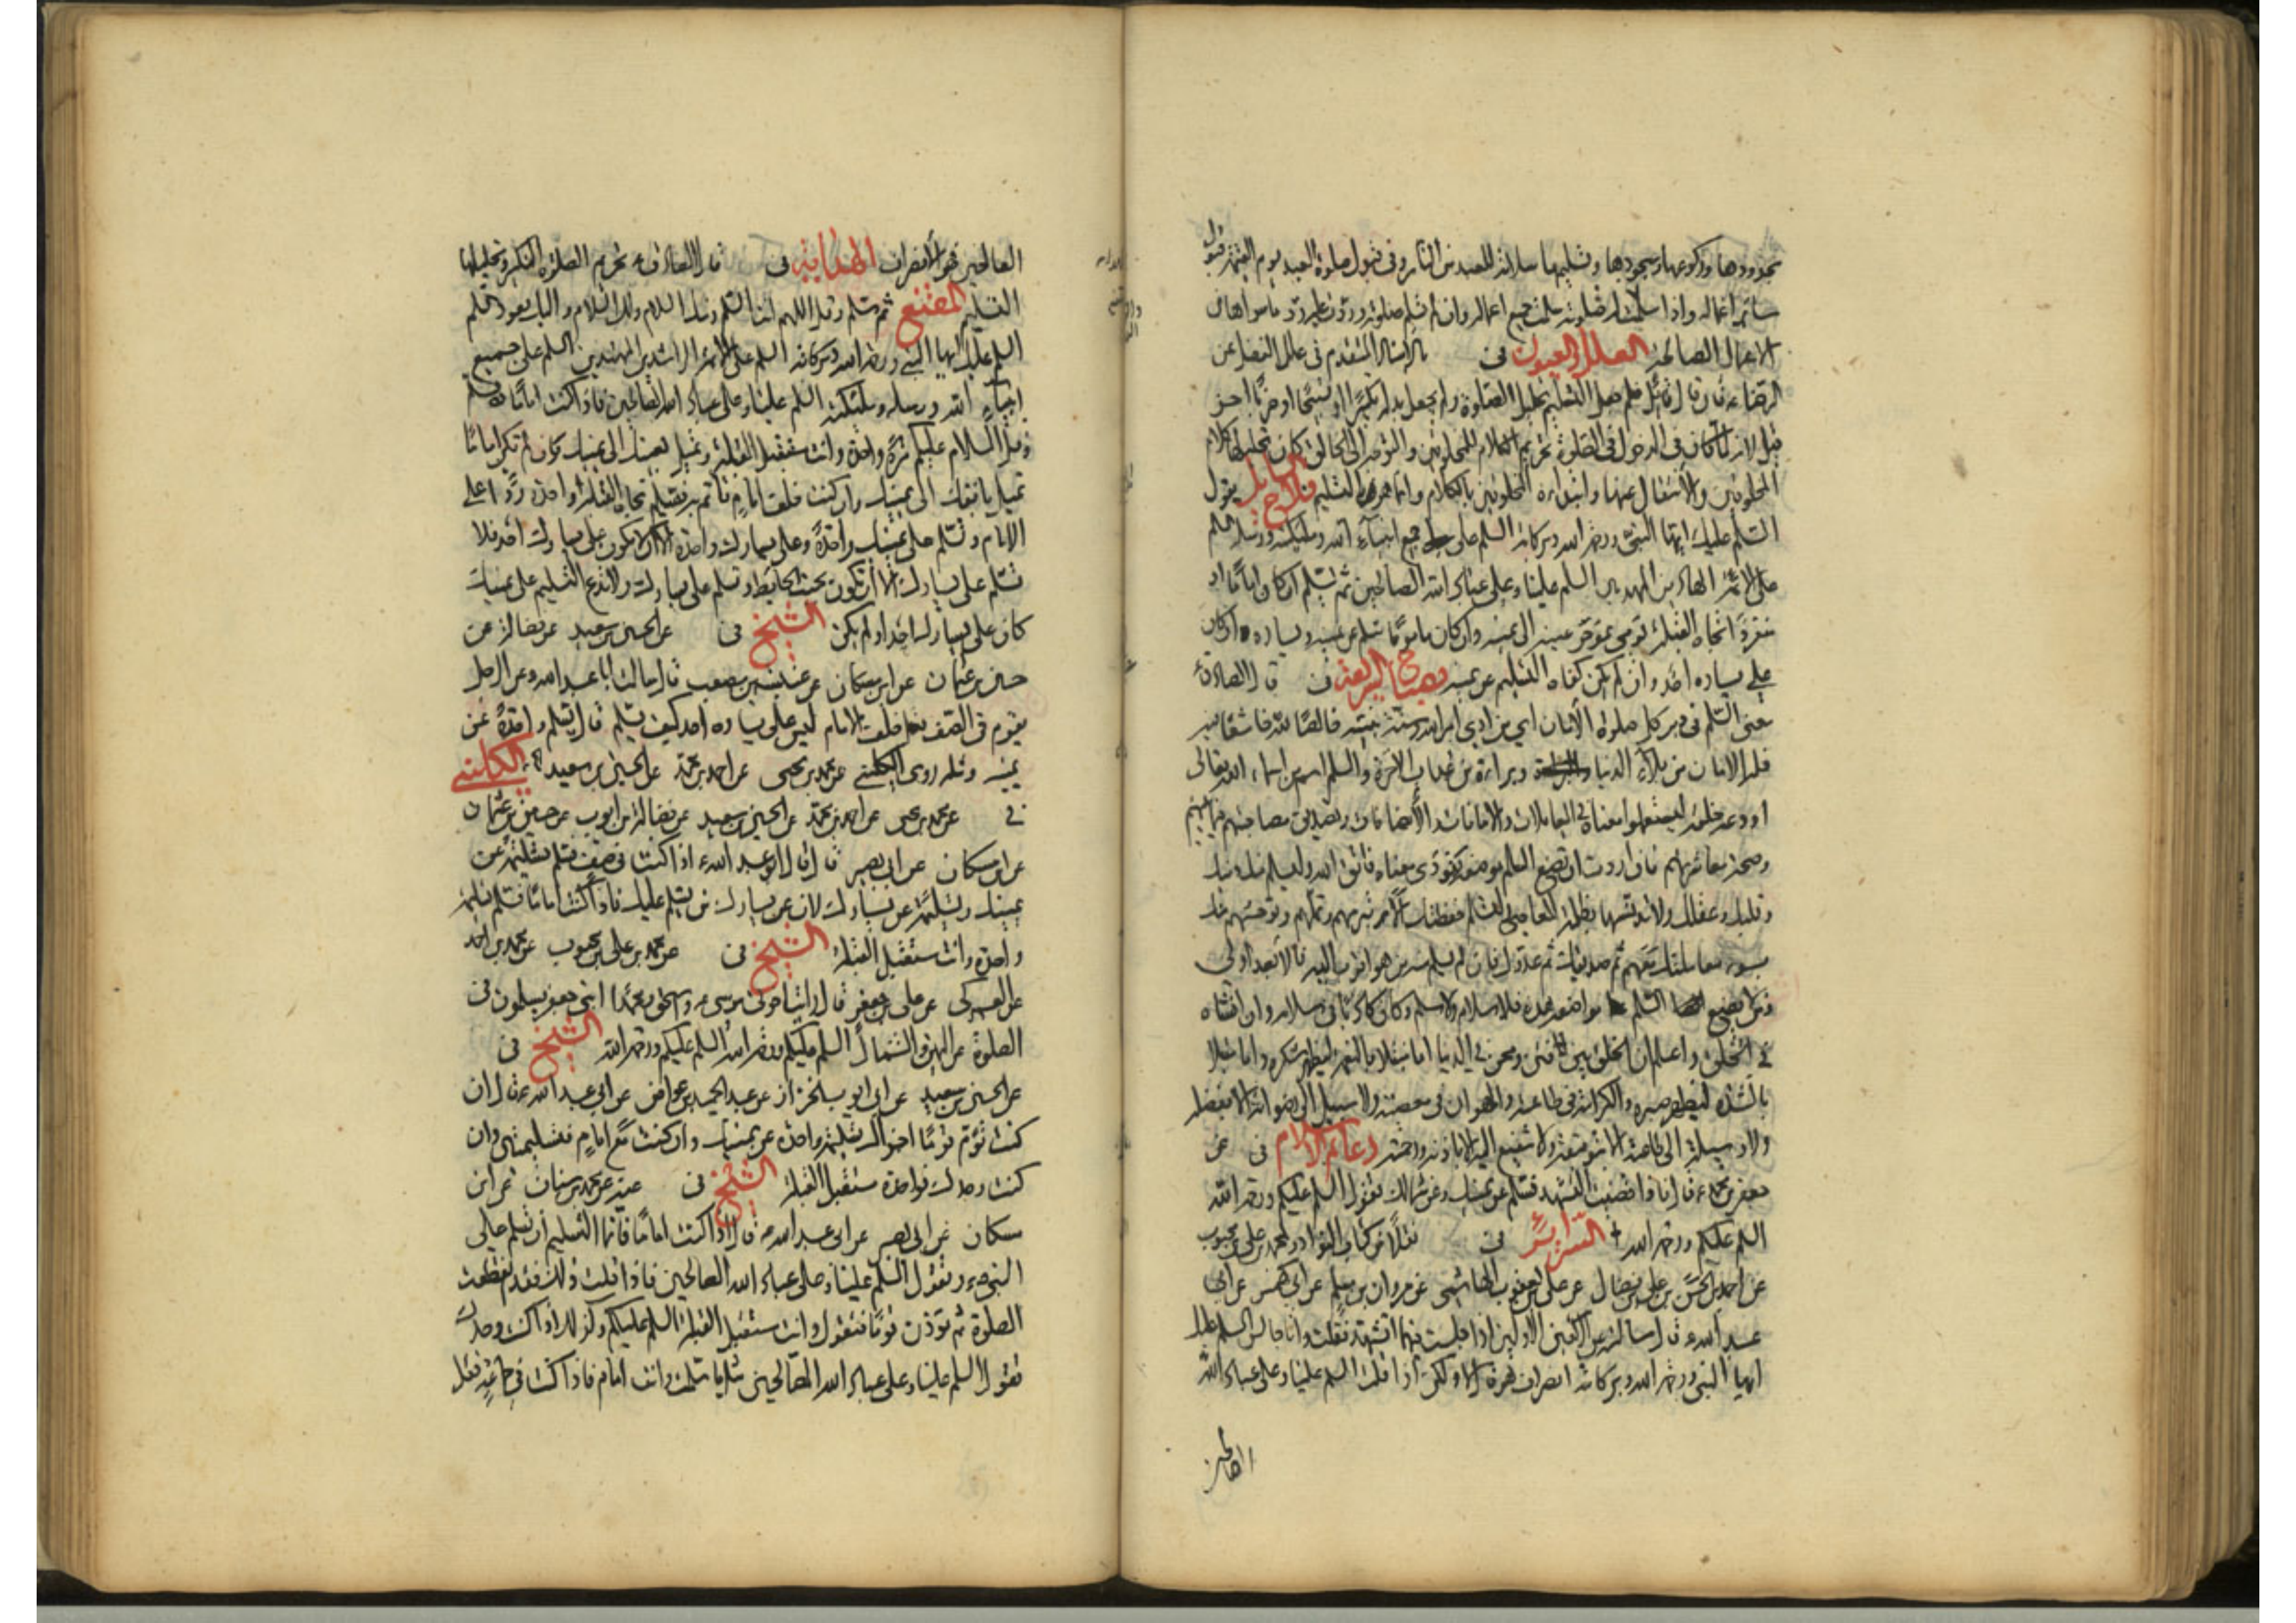 بحدودها وركوعها وسجودها وتسليمها سلامة للعبد من النار وفي قبول صلوة العبد يوم القيمة قبول
سائر اعماله واذا سلمت له صلوته سلمت جميع اعماله وان لم تسلم صلوته وردت عليه رد ما سواها من
الاعمال الصالحة العلل والعيون في بالاسناد المتقدم في علل الفضل عن
الرضا ع فان قال قائل فلم جعل التسليم تحليل الصلوة ولم يجعل بدله تكبيرا او تسبيحا او ضربا اخر
قيل لانه لما كان في الدخول في الصلوة تحريم الكلام للمخلوقين والتوجه الى الخالق كان تحليلها كلام
المخلوقين والانتقال عنها وابتداء المخلوقين بالكلام وانما هو بالتسليم فلاح السائل يقول
السلم عليك ايها النبي ورحمة الله وبركاته السلم على جميع انبياء الله وملئكته ورسله السلم
على الائمة الهادين المهديين السلم علينا وعلى عباد الله الصالحين ثم يسلم ان كان اماما او
منفردا تجاه القبلة يومي بمؤخر عينه الى يمينه وان كان ماموما سلم عن يمينه ويساره ان كان
على يساره احد وان لم يكن كفاه التسليم عن يمينه مصباح الشريعة في قال الصادق ع
معنى السلم في دبر كل صلوة الامان اي من ادى امر الله وسنة نبيه خالصا لله خاشعا منه
فله الامان من بلاء الدنيا وبراءة من عذاب الاخرة والسلم اسم من اسماء الله تعالى
اودعه خلقه ليستعملوا معناه في المعاملات والامانات والاضافات وتصديق مصاحبتهم فيما بينهم
وصحة معاشرتهم فان اردت ان تضع السلم موضعه وتؤدي معناه فاتق الله وليسلم منك دينك
وقلبك وعقلك ولا تدنسها بظلمة المعاصي لتسلم حفظتك الا تبرمهم وتملهم وتوحشهم منك
بسوء معاملتك معهم ثم صديقك ثم عدوك فان لم يسلم منه من هو اقرب اليه فالابعد اولى
ومن لا يضع السلم مواضعه هذه فلا سلام ولا سلم وكان كاذبا في سلامه وان افشاه
في الخلق واعلم ان الخلق بين فتن ومحن في الدنيا اما مبتلا بالنعمة ليظهر شكره واما مبتلا
بالشدة ليظهر صبره والكرامة في طاعته والهوان في معصيته ولا سبيل الى رضوانه الا بفضله
ولا وسيلة الى طاعته الا بتوفيقه ولا شفيع اليه الا باذنه ورحمته دعائم الاسلام في عن
جعفر بن محمد ع قال اذا قضيت التشهد فسلم عن يمينك وعن شمالك تقول السلم عليكم ورحمة الله
السلم عليكم ورحمة الله السرائر في نقلا من كتاب النوادر لمحمد بن علي بن محبوب
عن احمد بن الحسن بن علي بن فضال عن علي بن يعقوب الهاشمي عن مروان بن مسلم عن ابي كهمس عن ابي
عبد الله ع قال سالته عن الركعتين الاولتين اذا جلست فيهما اتشهد فقلت وانا جالس السلم عليك
ايها النبي ورحمة الله وبركاته انصراف هو قال لا ولكن اذا قلت السلم علينا وعلى عباد الله
الصالحين
الصالحين فهو الانصراف الهداية في قال الصادق ع تحريم الصلوة التكبير وتحليلها
التسليم المقنع ثم سلم وقل اللهم انت السلم ومنك السلام ولك السلام واليك يعود السلم
السلم عليك ايها النبي ورحمة الله وبركاته السلم على الائمة الراشدين المهتدين السلم على جميع
انبياء الله ورسله وملئكته السلم علينا وعلى عباد الله الصالحين فاذا كنت اماما فسلم
وقل السلام عليكم مرة واحدة وانت مستقبل القبلة وتميل بعينك الى يمينك وان لم تكن اماما
تميل بانفك الى يمينك وان كنت خلف امام تاتم به فتسلم تجاه القبلة واحدة ردا على
الامام وتسلم على يمينك واحدة وعلى يسارك واحدة الا ان لا يكون على يسارك احد فلا
تسلم على يسارك الا ان تكون بجنب الحائط فتسلم على يسارك ولا تدع التسليم على يمينك
كان على يمينك احد او لم يكن الشيخ في عن الحسين بن سعيد عن فضالة عن
حسين بن عثمان عن ابن مسكان عن عنبسة بن مصعب قال سالت ابا عبد الله ع عن الرجل
يقوم في الصف خلف الامام ليس على يساره احد كيف يسلم قال يسلم واحدة عن
يمينه ومثله روى الكليني عن محمد بن يحيى عن احمد بن محمد عن الحسين بن سعيد الكليني
في عن محمد بن يحيى عن احمد بن محمد عن الحسين بن سعيد عن فضالة بن ايوب عن حسين بن عثمان
عن ابن مسكان عن ابي بصير قال قال ابو عبد الله ع اذا كنت في صف فسلم تسليمة عن
يمينك وتسليمة عن يسارك لان عن يسارك من يسلم عليك فاذا كنت اماما فسلم تسليمة
واحدة وانت مستقبل القبلة الشيخ في عن محمد بن علي بن محبوب عن محمد بن احمد
عن العمركي عن علي بن جعفر قال رايت اخوتي موسى ع واسحق ومحمدا ابني جعفر يسلمون في
الصلوة عن اليمين والشمال السلم عليكم ورحمة الله السلم عليكم ورحمة الله الشيخ في
عن الحسين بن سعيد عن ابي ايوب الخزاز عن عبد الحميد بن عواض عن ابي عبد الله ع قال ان
كنت تؤم قوما اجزاك تسليمة واحدة عن يمينك وان كنت مع امام فتسليمتين وان
كنت وحدك فواحدة مستقبل القبلة الشيخ في عنه عن محمد بن سنان عن ابن
مسكان عن ابي بصير عن ابي عبد الله ع قال اذا كنت اماما فانما التسليم ان تسلم على
النبي ص وتقول السلم علينا وعلى عباد الله الصالحين فاذا قلت ذلك فقد انقطعت
الصلوة ثم تؤذن قوما فتقول وانت مستقبل القبلة السلم عليكم وكذلك اذا كنت وحدك
تقول السلم علينا وعلى عباد الله الصالحين مثل ما سلمت وانت امام فاذا كنت في جماعة فقل